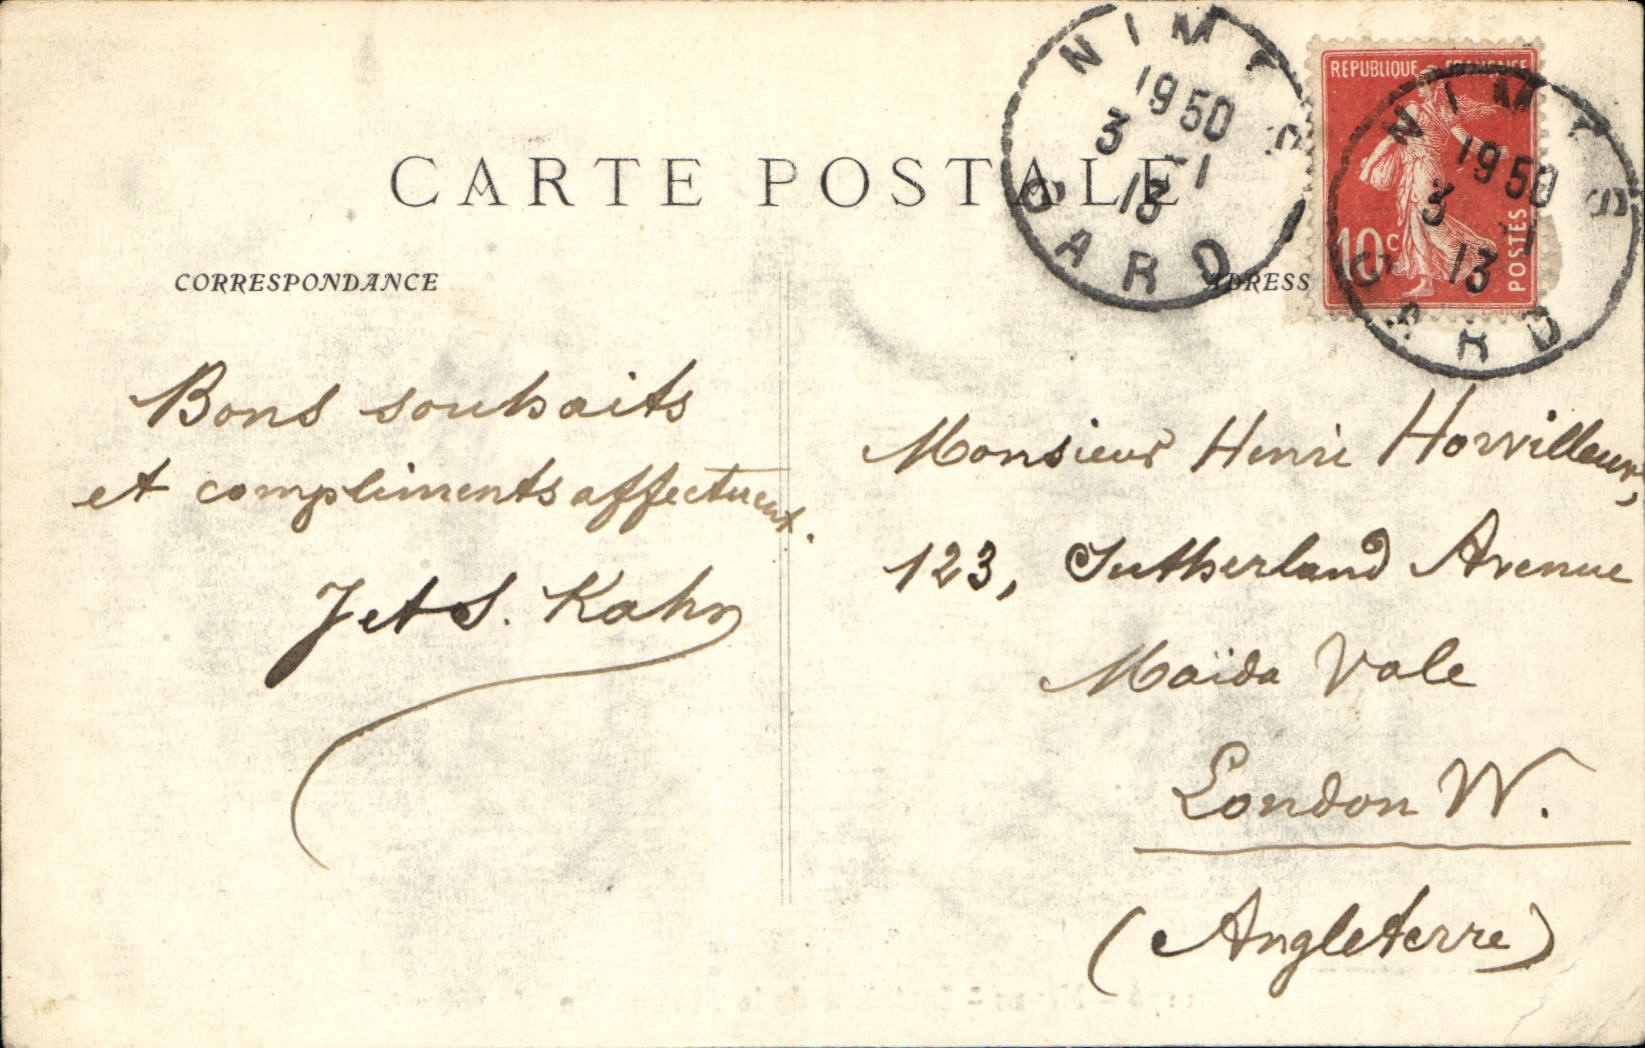 CARTE POSTALE
CORRESPONDANCE
ADRESS
NIMES
1950
3 -1
13
GARD
REPUBLIQUE FRANÇAISE
10c
POSTES
NIMES
1950
3 -1
13
GARD
Bons souhaits
et compliments affectueux.
J et S. Kahn
Monsieur Henri Horvilleur,
123, Sutherland Avenue
Maïda Vale
London W.
(Angleterre)